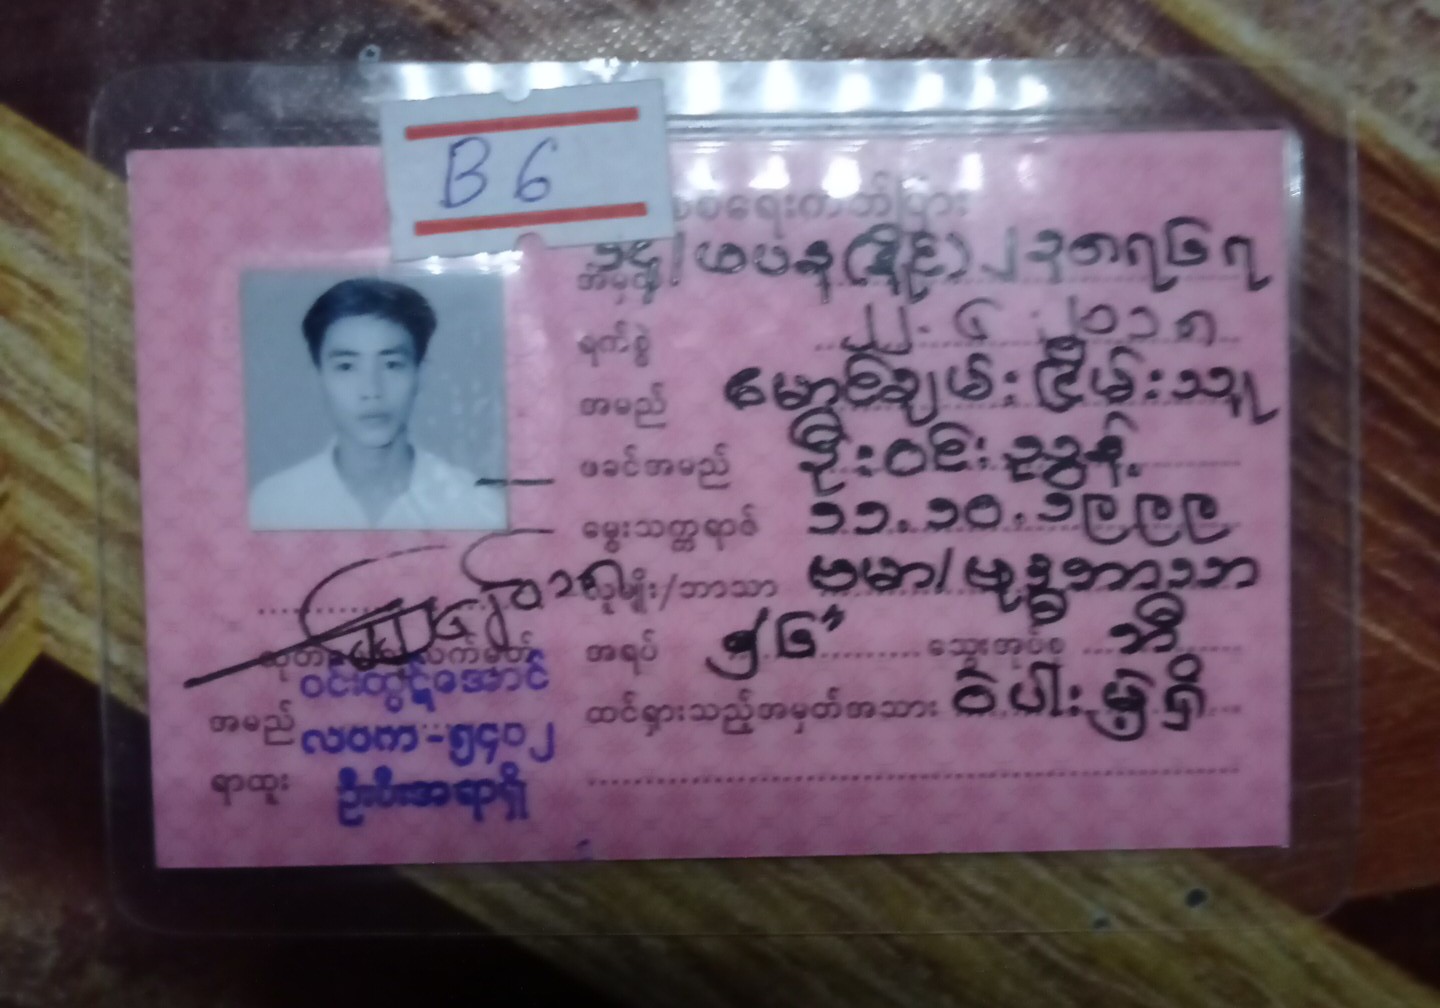 B 6
စိစစ်ရေးကတ်ပြား
အမှတ် ၁၄/ဖပန(နိုင်)၂၃၈၇၆၇
ရက်စွဲ ၂၂.၆.၂၀၁၈
အမည် မောင်ချမ်းငြိမ်းသူ
ဖခင်အမည် ဦးဝင်းညွန့်
မွေးသက္ကရာဇ် ၁၁.၁၀.၁၉၉၉
လူမျိုး/ဘာသာ ဗမာ/ဗုဒ္ဓဘာသာ
အရပ် ၅'၆" သွေးအုပ်စု ဘီ
ထင်ရှားသည့်အမှတ်အသား ဝဲပါးမှဲ့ရှိ
ထုတ်ပေးသူလက်မှတ်
ဝင်းထွဋ်အောင်
အမည် လဝက-၅၄၀၂
ရာထူး ဦးစီးအရာရှိ